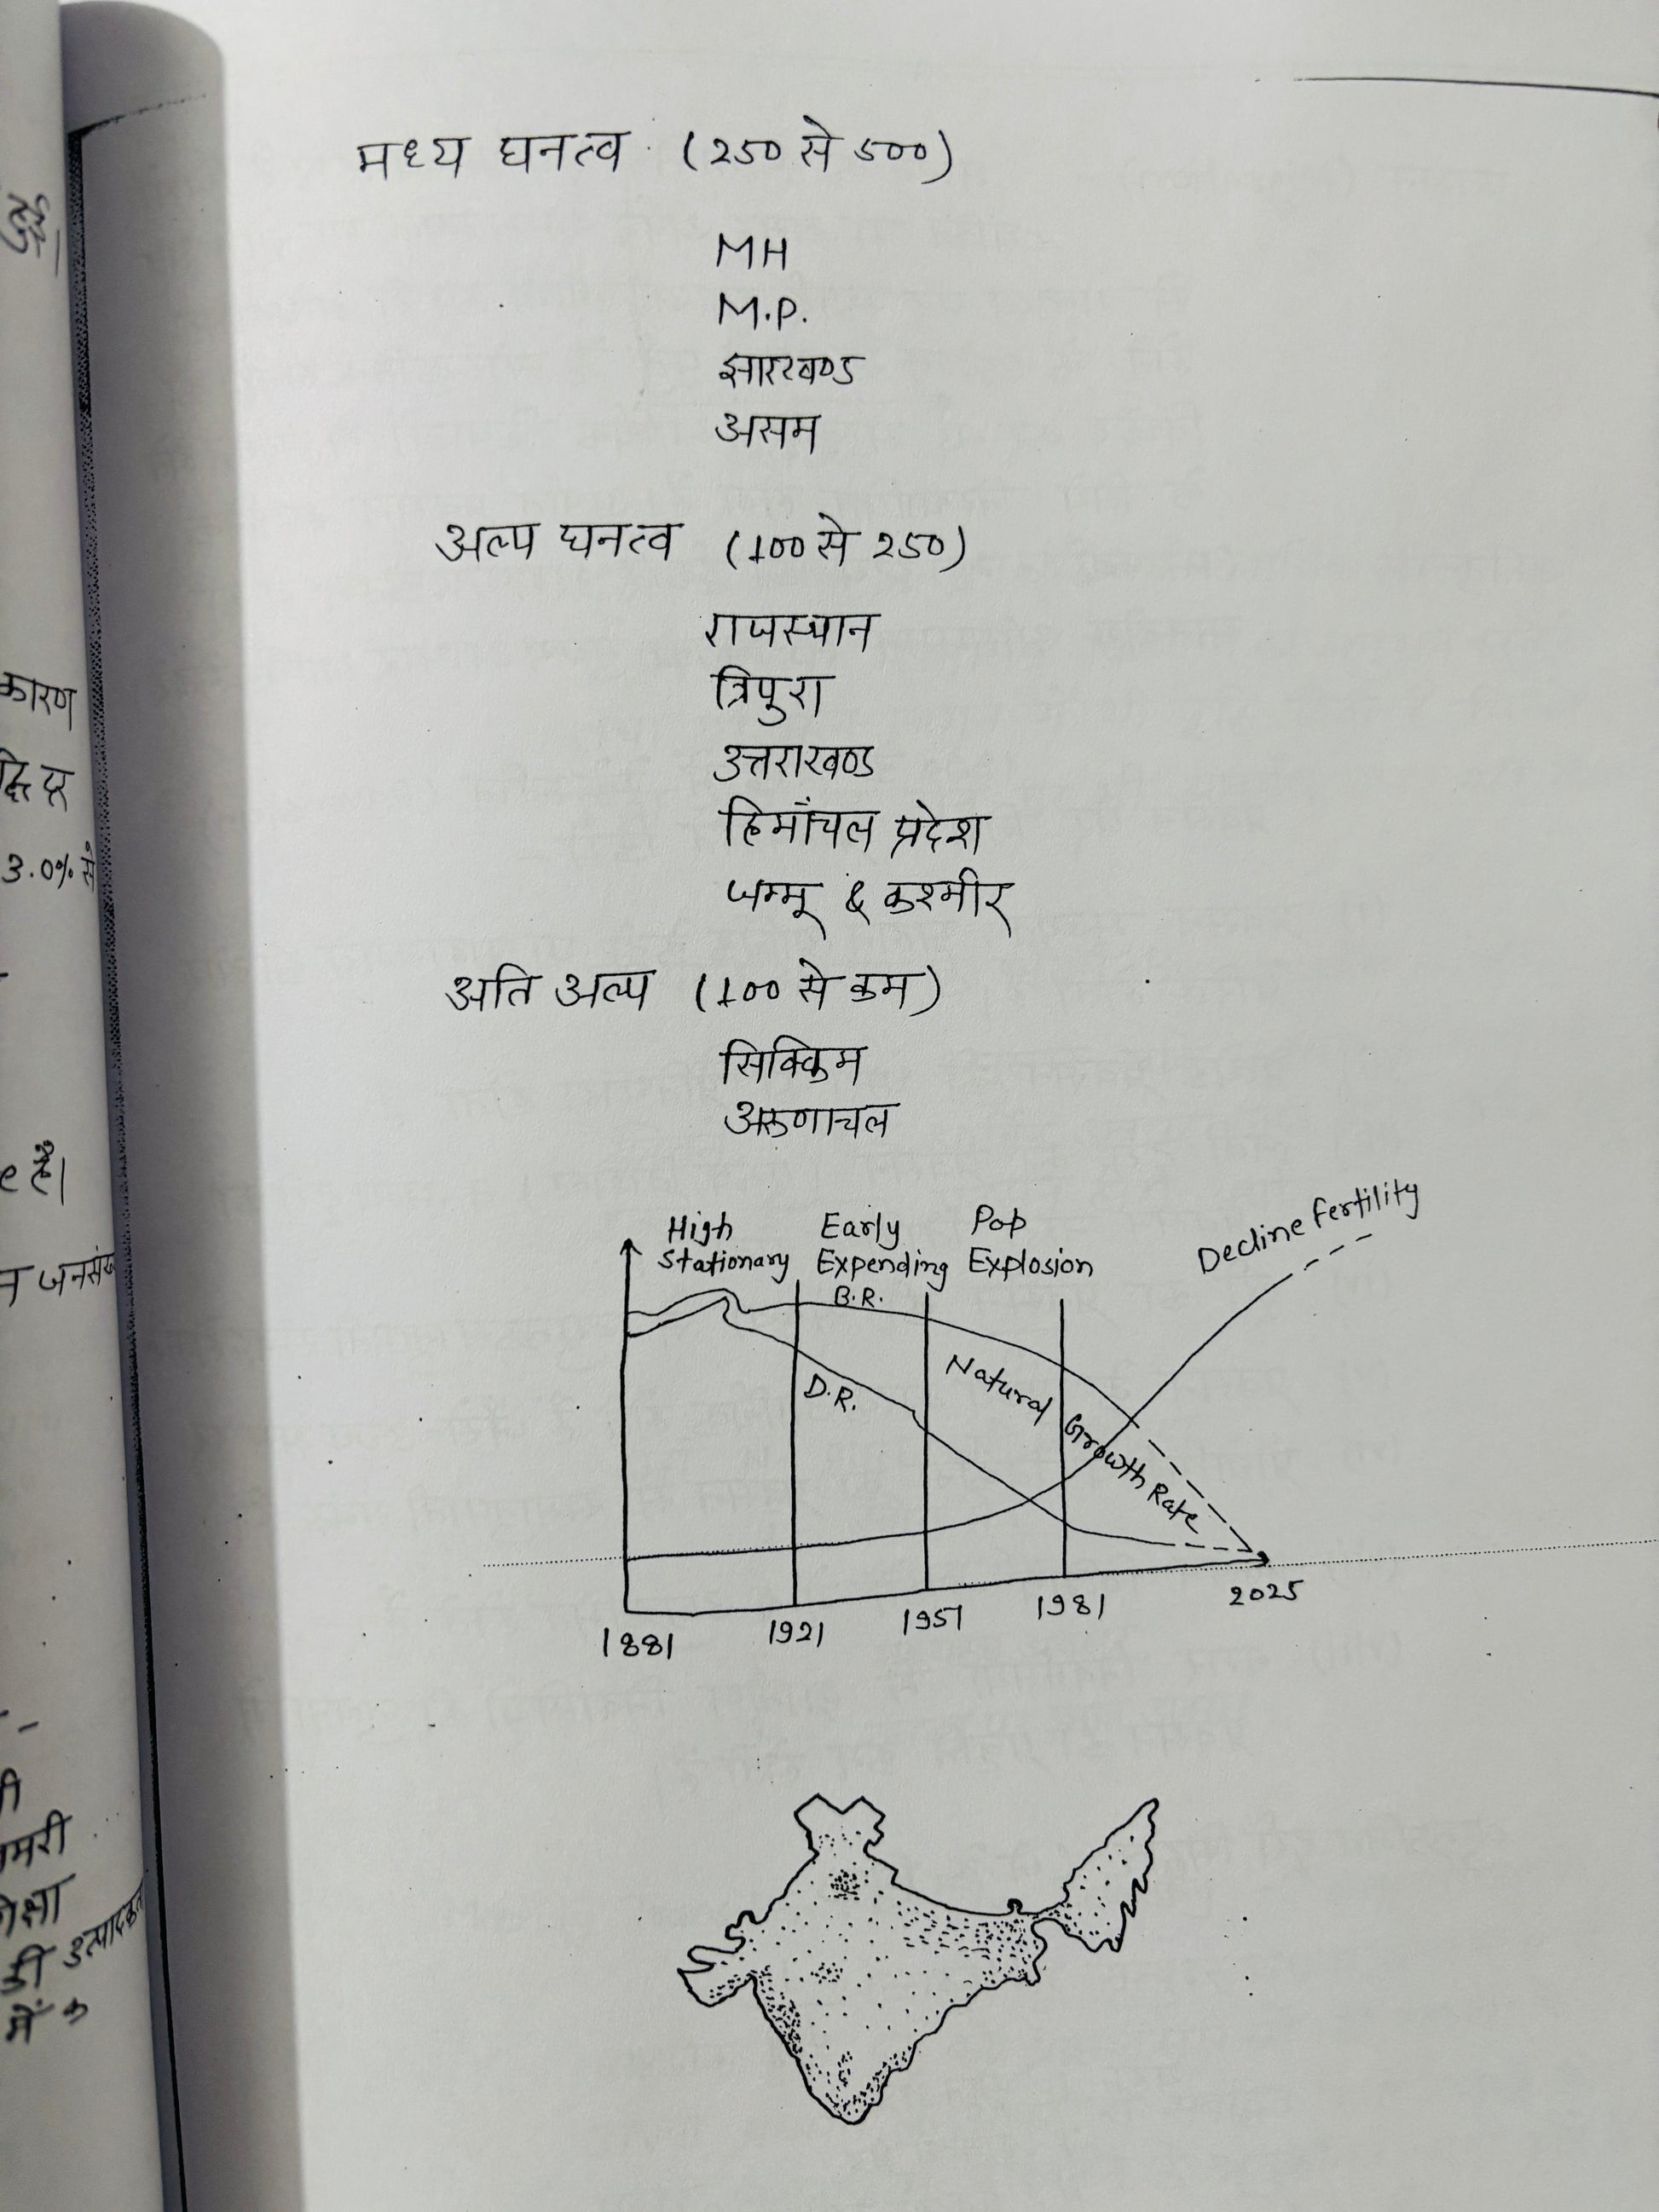 मध्य घनत्व (250 से 500)
MH
M.P.
झारखण्ड
असम
अल्प घनत्व (100 से 250)
राजस्थान
त्रिपुरा
उत्तराखण्ड
हिमांचल प्रदेश
जम्मू & कश्मीर
अति अल्प (100 से कम)
सिक्किम
अरुणाचल
High Stationary
Early Expending
Pop Explosion
Decline Fertility
B.R.
D.R.
Natural Growth Rate
1881
1921
1951
1981
2025
कारण
3.0% से
है।
उत्पादकता
में